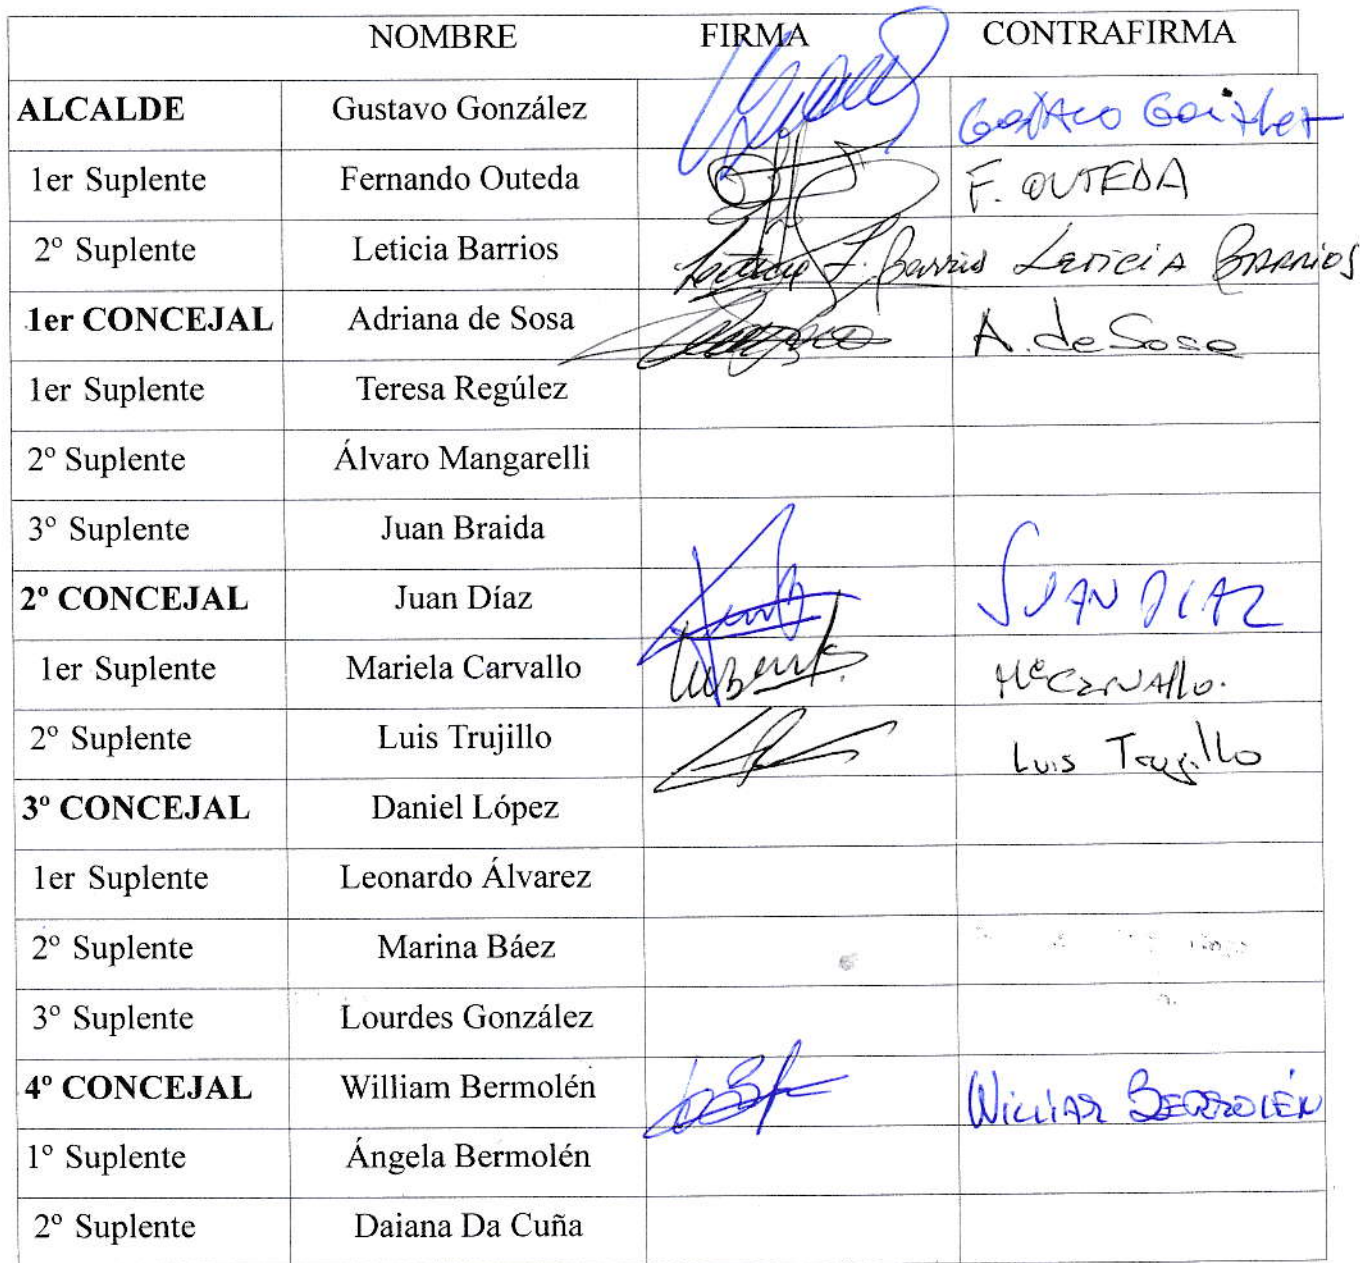 NOMBRE FIRMA CONTRAFIRMA
ALCALDE Gustavo González
1er Suplente Fernando Outeda F. OUTEDA
2º Suplente Leticia Barrios Leticia F. Barrios LETICIA BARRIOS
1er CONCEJAL Adriana de Sosa A. de Sosa
1er Suplente Teresa Regúlez
2º Suplente Álvaro Mangarelli
3º Suplente Juan Braida
2º CONCEJAL Juan Díaz JUAN DIAZ
1er Suplente Mariela Carvallo Mª CARVAllo.
2º Suplente Luis Trujillo Luis Trujillo
3º CONCEJAL Daniel López
1er Suplente Leonardo Álvarez
2º Suplente Marina Báez
3º Suplente Lourdes González
4º CONCEJAL William Bermolén WILLIAM BERMOLÉN
1º Suplente Ángela Bermolén
2º Suplente Daiana Da Cuña